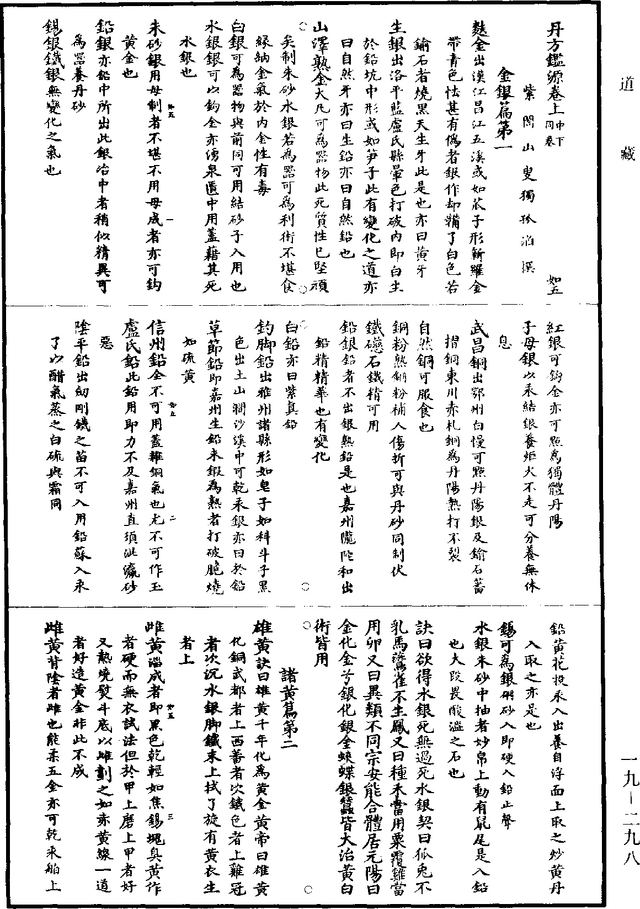 道藏
丹方鑑源卷上 中下同卷 如五
紫閣山叟獨孤滔撰
金銀篇第一
麩金出漢江昌江五溪或如苽子形斬羅金
帶青色怯甚有偽者銀作却精了白色若
鍮石者燒黑天生牙此是也亦曰黃牙
生銀出洛平藍盧氏縣暈色打破內即白生
於鉛坑中形或如笋子此有變化之道亦
曰自然牙亦曰生鉛亦曰自然鉛也
山澤熟金大凡可為器物此死質性已堅頑
矣制朱砂水銀若為器可為利術不堪食
緣納金氣於內金性有毒
白銀可為器物與前同可用結砂子入用也
水銀銀可以鈎金亦湧泉匱中用蓋藉其死
水銀也
朱砂銀用母制者不堪不用母成者亦可鈎
黃金也
鉛銀亦鉛中所出此銀冶中者稍似精異可
為器養丹砂
錫銀鐵銀無變化之氣也
紅銀可鈎金亦可點為獨體丹陽
子母銀以汞結銀養炬火不走可分養無休
息
武昌銅出鄂州白慢可點丹陽銀及鍮石蓄
摺銅東川赤札銅為丹陽熱打不裂
自然銅可服食也
銅粉熟銅粉補人傷折可與丹砂同制伏
鐵礠石鐵精可用
鉛銀鉛者不出銀熟鉛是也嘉州隴陀和出
鉛精精華也有變化
白鉛亦曰紫真鉛
釣脚鉛出雅州諸縣形如皂子如科斗子黑
色出土山澗沙溪中可乾汞銀亦曰於鉛
草節鉛即嘉州生鉛未鍛為熟者打破脆燒
如硫黃
信州鉛全不可用蓋雜銅氣也尤不可作玉
盧氏鉛此鉛用即力不及嘉州直須泚瀛砂
惡
陰平鉛出劒剛鐵之苗不可入用鉛蘇入汞
了以醋氣蒸之白硫與霜同
鉛黃花投汞入出養自浮面上取之炒黃丹
入取之亦是也
錫可為銀硇砂入即硬入鉛止聲
水銀朱砂中抽者炒帛上動有鼠尾是入鉛
也大段畏酸澁之石也
訣曰欲得水銀死無過死水銀契曰狐兔不
乳馬鸞雀不生鳳又曰種禾當用粟覆雞當
用卯又曰異類不同宗安能合體居元陽曰
金化金苧銀化銀金蛺蝶銀蠶皆大治黃白
術皆用
諸黃篇第二
雄黃訣曰雄黃千年化為黃金黃帝曰雄黃
化銅武都者上西蕃者次鐵色者上雞冠
者次沉水銀脚鐵末上拭了旋有黃衣生
者上
雌黃淄成者即黑色乾輕如焦錫塊臭黃作
者硬而無衣試法但於甲上磨上甲者好
又熱燒熨斗底以雌劃之如赤黃線一道
者好造黃金非此不成
雌黃背陰者雌也能柔五金亦可乾汞舶上
一九—二九八